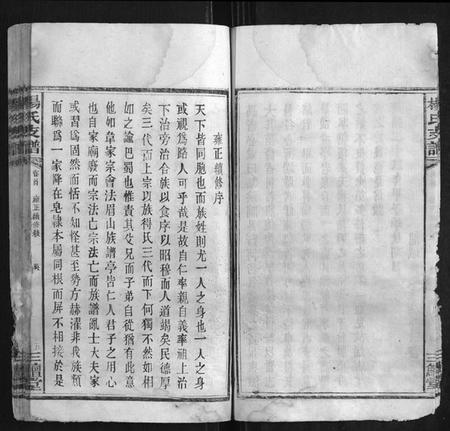 楊氏支譜
三鱣堂
雍正續修序
天下皆同胞也而族姓則尤一人之身也一人之身
或視爲路人可乎哉是故自仁率親自義率祖上治
下治旁治合族以食序以昭穆而人道竭矣民德厚
矣三代而上宗以族得氏三代而下何獨不然如相
如之諭巴蜀也惟責其父兄而子弟自從猶有此意
他如韋家宗會法眉山族譜亭皆仁人君子之用心
也自家廟廢而宗法亡宗法亡而族譜亂士大夫家
或習爲固然而恬不知怪甚至勢方赫濯非我族類
而聯爲一家降在皂隸本屬同根而屏不相接於是
楊氏支譜
卷首
雍正續修序
三鱣堂